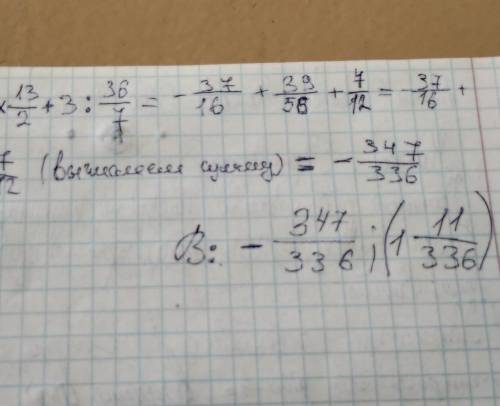 × 13/2 + 3 : 36/7 = - 37/16 + 39/56 + 7/12 = - 37/16 +
7/12 (вычислием сумму) = - 347/336
В: - 347/336 ; (1 11/336)